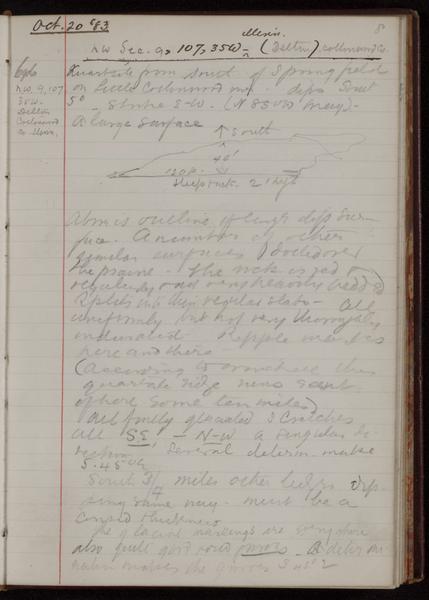 Oct. 20 '83
8
Minn.
NW Sec. 9, 107, 35W - (Delton) Cottonwood Co.
NW. 9, 107
35W.
Delton
Cottonwood
Co. Minn.
Quartzite from south of Springfield
on Little Cottonwood dips South
5° - Strike E-W. (N 85 W)
A large surface
South
40'
120 p.
2' high
Above is outline of large dip sur-
face. A number of other
similar surfaces dotted over
the prairie. The rock is red
regularly and very heavily bedded
Splits into thin regular slabs - All
uniformly but not very thoroughly
indurated. Ripple marks
here and there -
(According to this
quartzite ridge runs east
some ten miles)
All finely glaciated Scratches
all SE - N-W a singular di-
rection. Several determ. make
S. 45° E
South 3/4 miles other ledges dip-
ping same way - must be a
thickness
The glacial markings are everywhere
also quite good
makes the grooves S 45° E